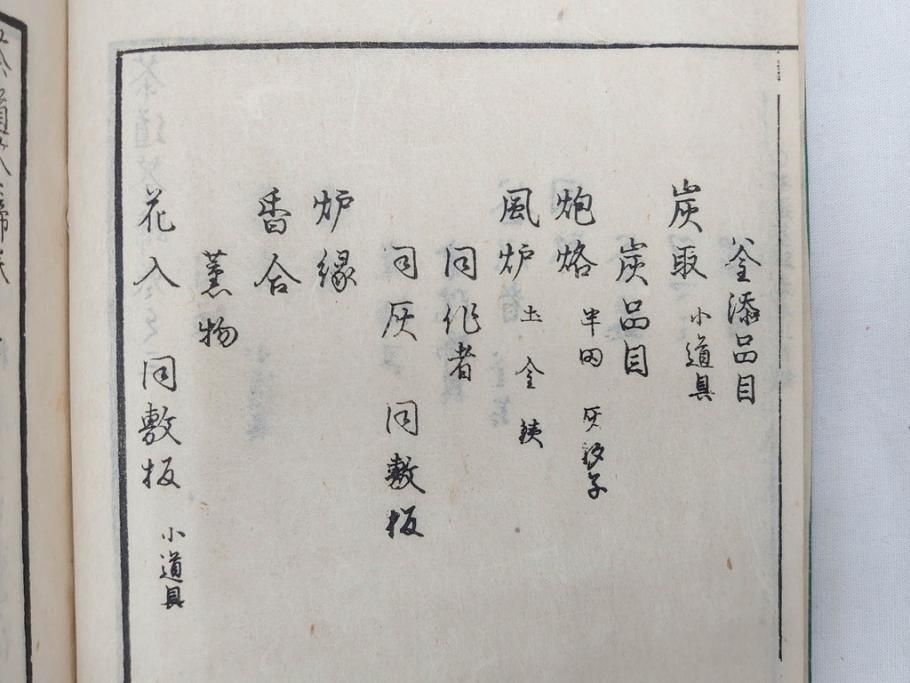 釜添品目
炭取 小道具
炭品目
炮烙 半田
風炉 土 金 銕
同作者
同灰 同敷板
炉縁
香合
薫物
花入 同敷板 小道具
茶道筌蹄